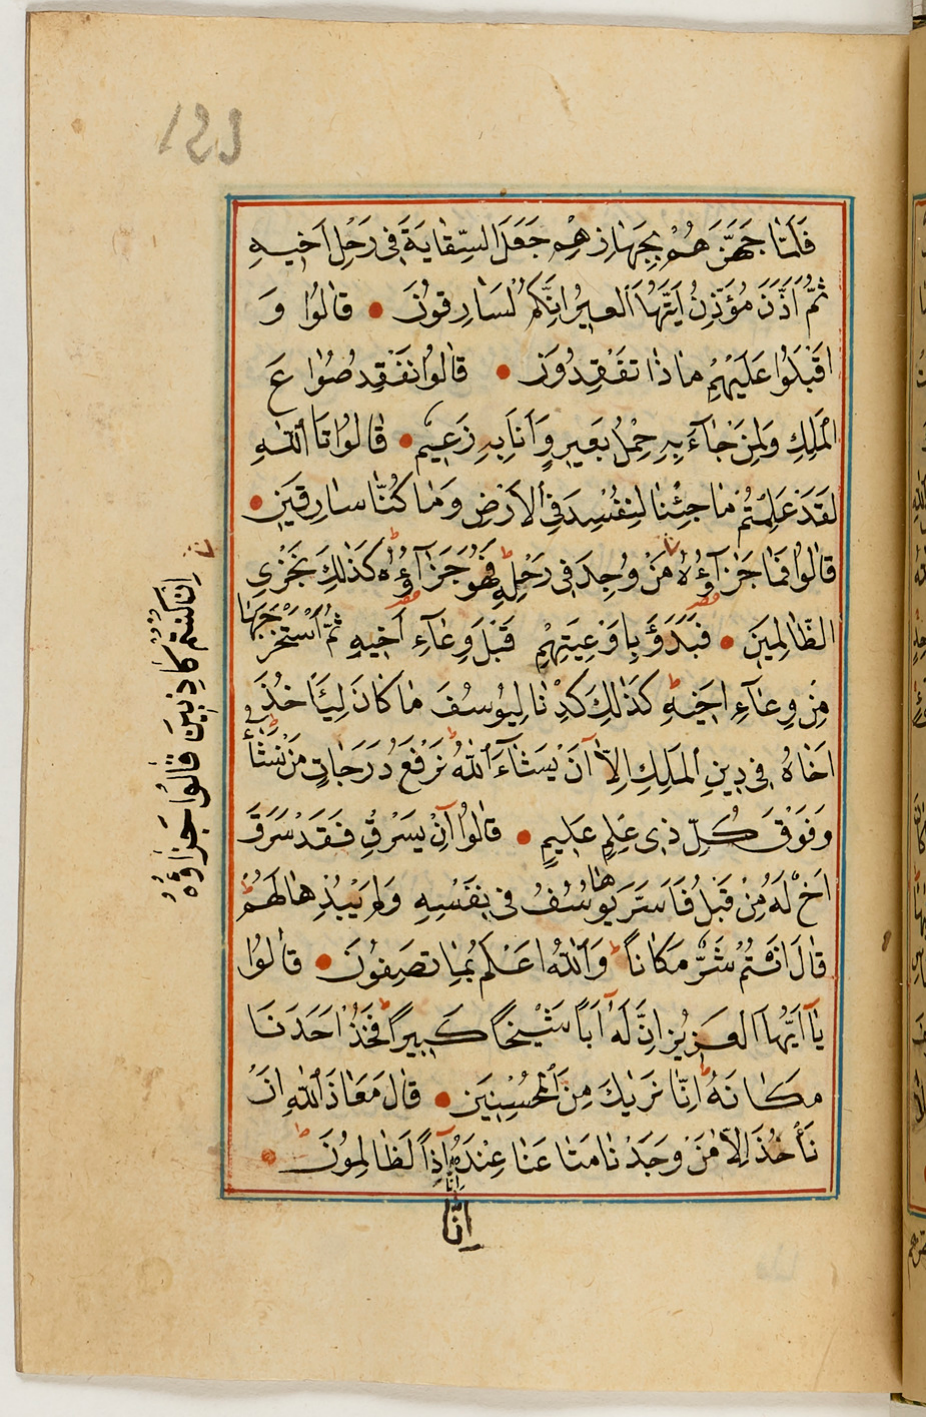 123
فَلَمَّا جَهَّزَهُمْ بِجَهَازِهِمْ جَعَلَ السِّقَايَةَ فِى رَحْلِ اَخِيهِ
ثُمَّ اَذَّنَ مُؤَذِّنٌ اَيَّتُهَا الْعِيرُ اِنَّكُمْ لَسَارِقُونَ ● قَالُوا وَ
اَقْبَلُوا عَلَيْهِمْ مَاذَا تَفْقِدُونَ ● قَالُوا نَفْقِدُ صُوَاعَ
الْمَلِكِ وَلِمَنْ جَآءَ بِهِ حِمْلُ بَعِيرٍ وَاَنَا بِهِ زَعِيمٌ ● قَالُوا تَاللّٰهِ
لَقَدْ عَلِمْتُمْ مَا جِئْنَا لِنُفْسِدَ فِى الْاَرْضِ وَمَا كُنَّا سَارِقِينَ ●
قَالُوا فَمَا جَزَآؤُهُ مَنْ وُجِدَ فِى رَحْلِهِ فَهُوَ جَزَآؤُهُ كَذٰلِكَ نَجْزِى
الظَّالِمِينَ ● فَبَدَؤَ بِاَوْعِيَتِهِمْ قَبْلَ وِعَآءِ اَخِيهِ ثُمَّ اسْتَخْرَجَهَا
مِنْ وِعَآءِ اَخِيهِ كَذٰلِكَ كِدْنَا لِيُوسُفَ مَا كَانَ لِيَأْخُذَ
اَخَاهُ فِى دِينِ الْمَلِكِ اِلَّا اَنْ يَشَآءَ اللّٰهُ نَرْفَعُ دَرَجَاتٍ مَنْ نَشَآءُ
وَفَوْقَ كُلِّ ذِى عِلْمٍ عَلِيمٌ ● قَالُوا اِنْ يَسْرِقْ فَقَدْ سَرَقَ
اَخٌ لَهُ مِنْ قَبْلُ فَاَسَرَّهَا يُوسُفُ فِى نَفْسِهِ وَلَمْ يُبْدِهَا لَهُمْ
قَالَ اَنْتُمْ شَرٌّ مَكَانًا وَاللّٰهُ اَعْلَمُ بِمَا تَصِفُونَ ● قَالُوا
يَآ اَيُّهَا الْعَزِيزُ اِنَّ لَهُ اَبًا شَيْخًا كَبِيرًا فَخُذْ اَحَدَنَا
مَكَانَهُ اِنَّا نَرٰيكَ مِنَ الْمُحْسِنِينَ ● قَالَ مَعَاذَ اللّٰهِ اَنْ
نَأْخُذَ اِلَّا مَنْ وَجَدْنَا مَتَاعَنَا عِنْدَهُ اِذًا لَظَالِمُونَ ●
اِنَّا
اِنَّا
اِنْ كُنْتُمْ كَاذِبِينَ قَالُوا جَزَاؤُهُ